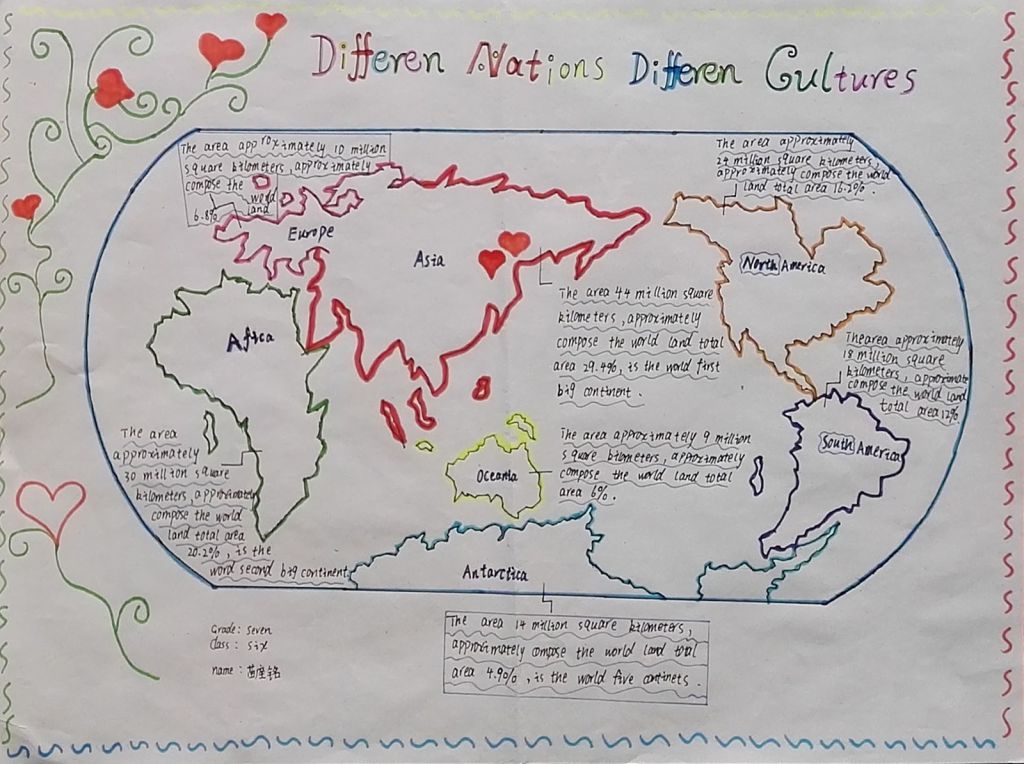 Differen Nations Differen Cultures
The area approximately 10 million
square kilometers, approximately
compose the world
6.8% land
Europe
Asia
The area 44 million square
kilometers, approximately
compose the world land total
area 29.4%, is the world first
big continent.
The area approximately
24 million square kilometers,
approximately compose the world
land total area 16.2%.
North America
Africa
The area approximately
18 million square
kilometers, approximate
compose the world land
total area 12%
South America
The area
approximately
30 million square
kilometers, approximate
compose the world
land total area
20.2%, is the
word second big continent
Oceania
The area approximately 9 million
square kilometers, approximately
compose the world land total
area 6%.
Antarctica
The area 14 million square kilometers,
approximately compose the world land total
area 4.9%, is the world five continets.
Grade: seven
Class: six
name: